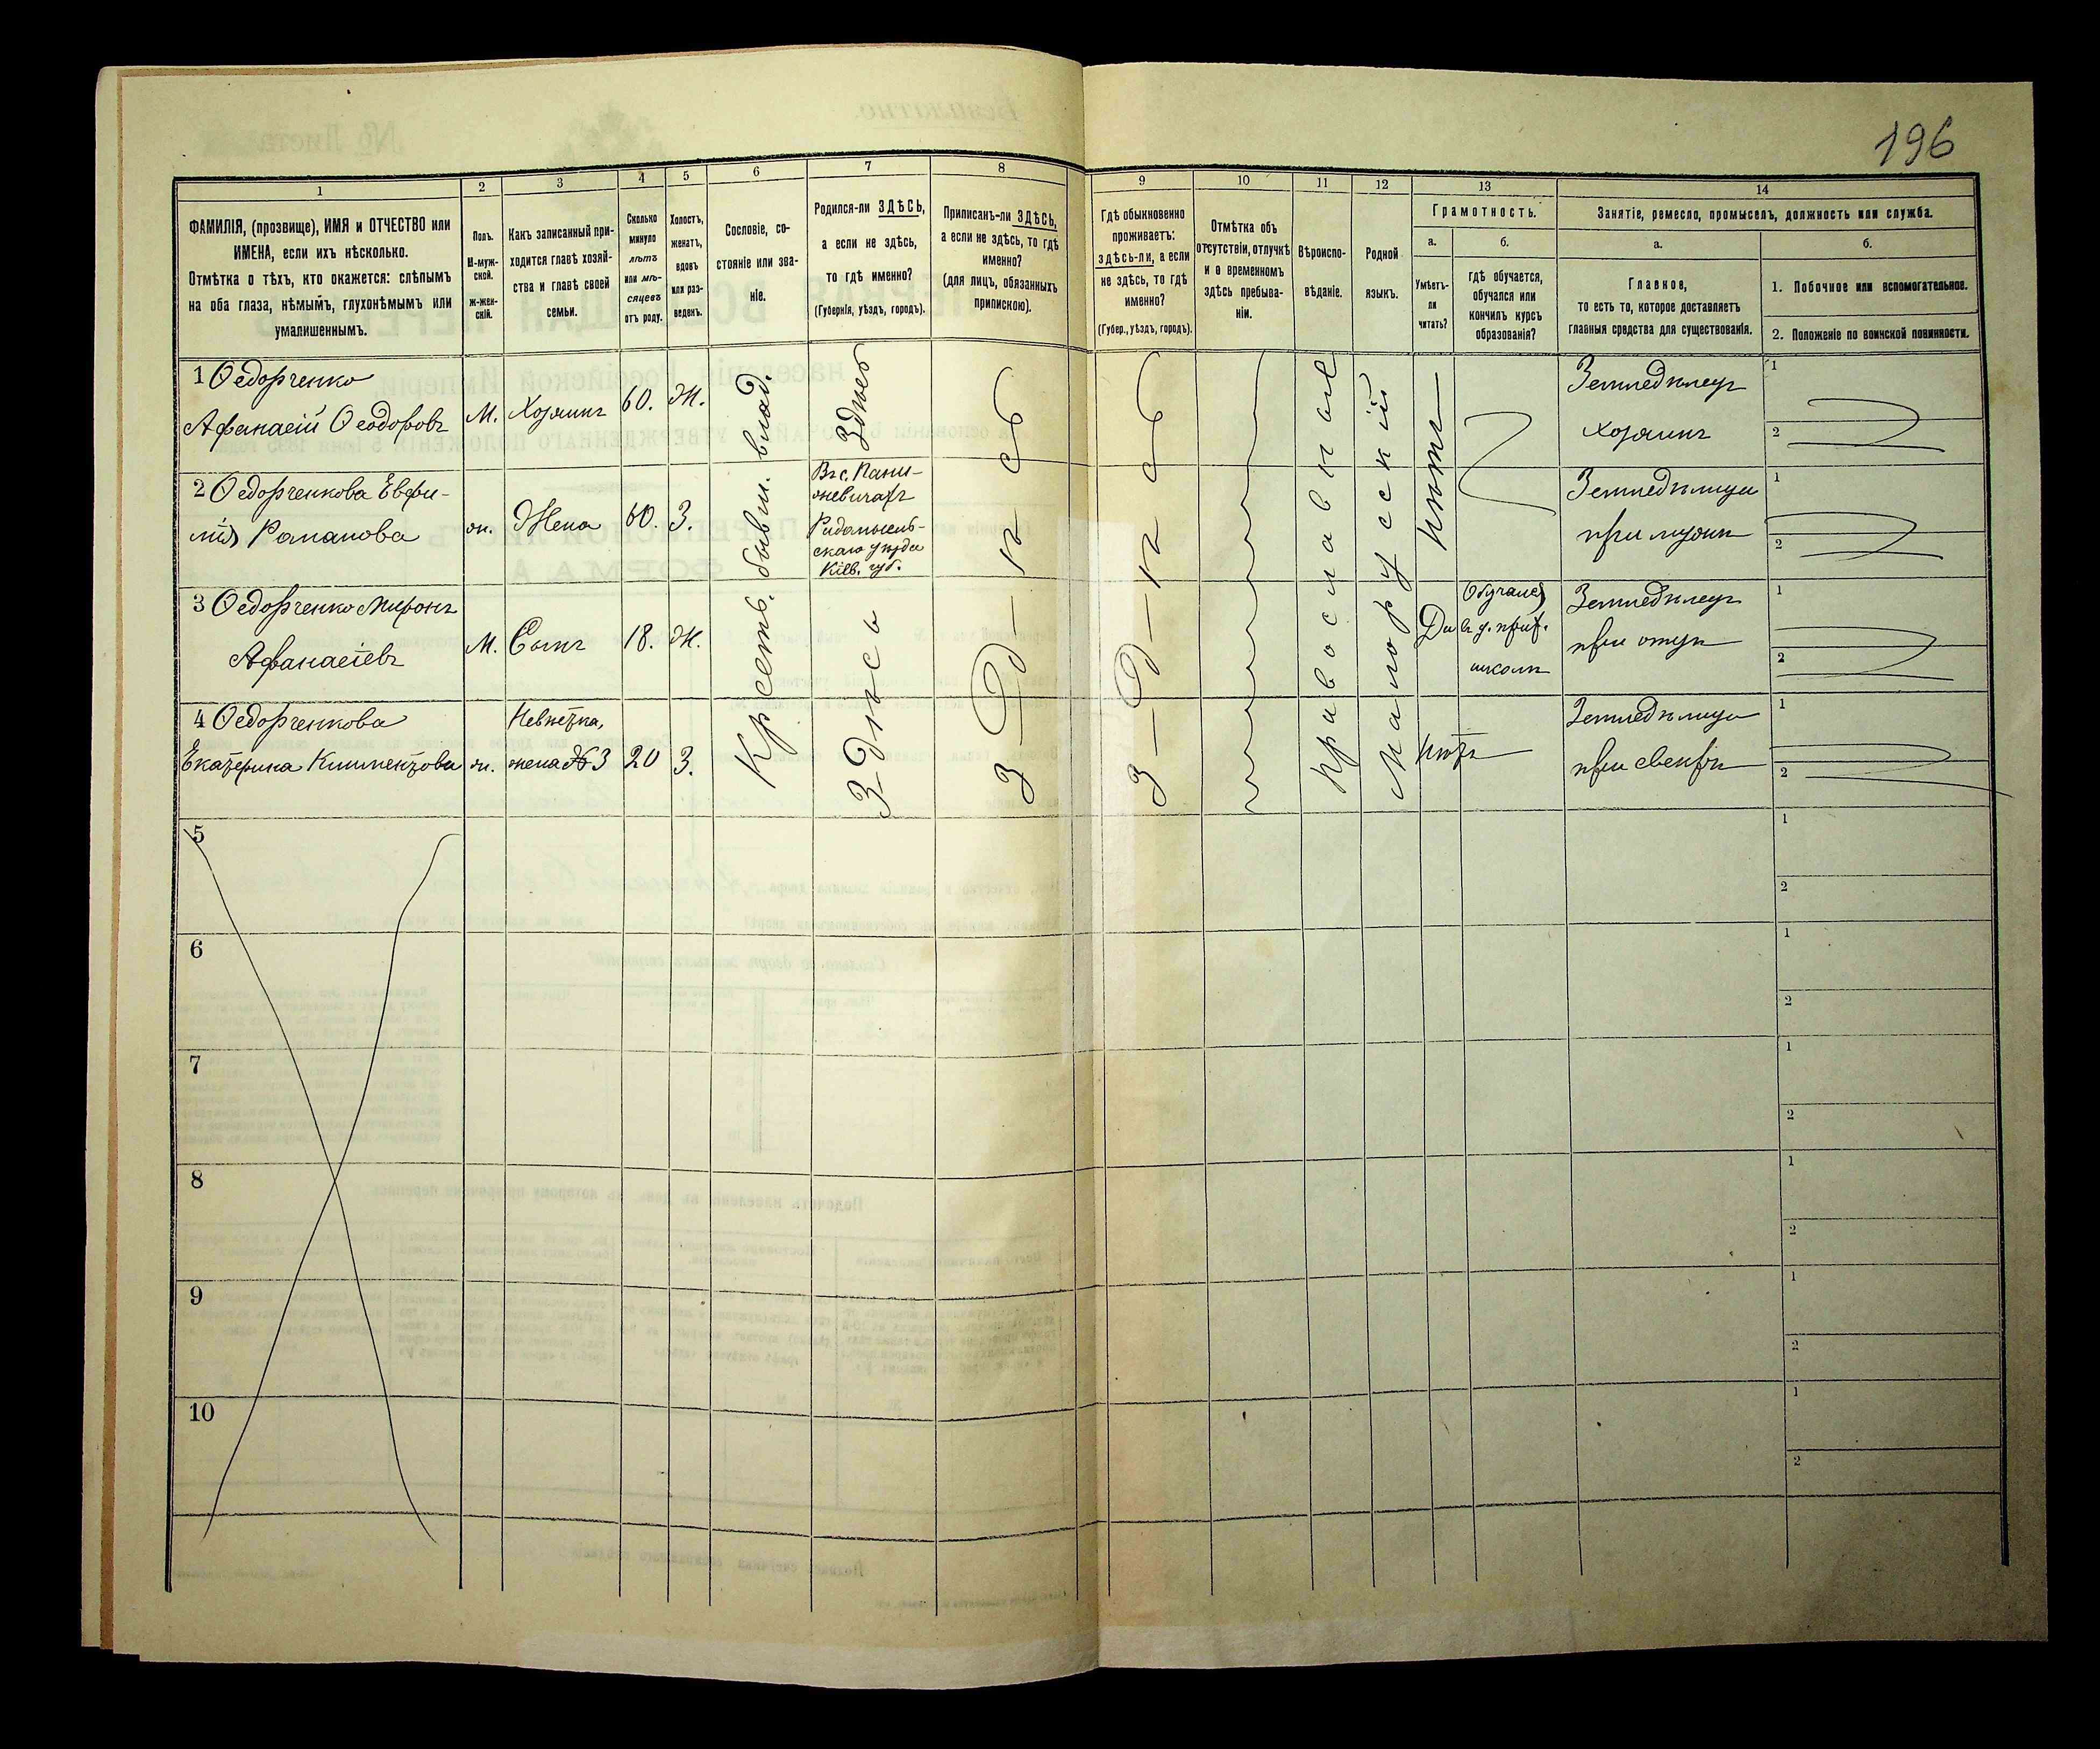 196
1
2
3
4
5
6
7
8
9
10
11
12
13
14
ФАМИЛІЯ, (прозвище), ИМЯ и ОТЧЕСТВО или
ИМЕНА, если ихъ нѣсколько.
Отмѣтка о тѣхъ, кто окажется: слѣпымъ
на оба глаза, нѣмымъ, глухонѣмымъ или
умалишеннымъ.
Полъ.
М-муж-
ской.
Ж-жен-
скій.
Какъ записанный при-
ходится главѣ хозяй-
ства и главѣ своей
семьи.
Сколько
минуло
лѣтъ
или мѣ-
сяцевъ
отъ роду.
Холостъ,
женатъ,
вдовъ
или раз-
веденъ.
Сословіе, со-
стояніе или зва-
ніе.
Родился-ли ЗДѢСЬ,
а если не здѣсь,
то гдѣ именно?
(Губернія, уѣздъ, городъ).
Приписанъ-ли ЗДѢСЬ,
а если не здѣсь, то гдѣ
именно?
(для лицъ, обязанныхъ
припискою).
Гдѣ обыкновенно
проживаетъ:
здѣсь-ли, а если
не здѣсь, то гдѣ
именно?
(Губер., уѣздъ, городъ).
Отмѣтка объ
отсутствіи, отлучкѣ
и о временномъ
здѣсь пребыва-
ніи.
Вѣроиспо-
вѣданіе.
Родной
языкъ.
Грамотность.
а.
Умѣетъ-
ли
читать?
б.
гдѣ обучается,
обучался или
кончилъ курсъ
образованія?
Занятіе, ремесло, промыселъ, должность или служба.
а.
Главное,
то есть то, которое доставляетъ
главныя средства для существованія.
б.
1. Побочное или вспомогательное.
2. Положеніе по воинской повинности.
1 Ѳедорченко
Афанасій Ѳеодоровъ
М.
Хозяинъ
60.
Ж.
Крестъ. бывш. влад.
Здѣсь
Здѣсь
Здѣсь
Православные
Малорусскій
нѣтъ
Земледѣлецъ
хозяинъ
1
2
2 Ѳедорченкова Евфи-
мія Романова
ж.
Жена
60.
З.
Въ с.
Радомысль-
скаго уѣзда
Кіев. губ.
Земледѣлица
при мужѣ
1
2
3 Ѳедорченко Миронъ
Афанасіевъ
М.
Сынъ
18.
Ж.
Здѣсь
Да
Обучался
школѣ
Земледѣлецъ
при отцѣ
1
2
4 Ѳедорченкова
Екатерина Климентова
ж.
Невѣстка,
жена № 3
20
З.
нѣтъ
Земледѣлица
при свекрѣ
1
2
5
1
2
6
1
2
7
1
2
8
1
2
9
1
2
10
1
2